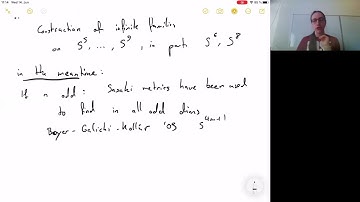 Construction of infinite families
on S^5, ..., S^9, in parti S^6, S^8
in the meantime:
If n odd: Sasaki metrics have been used
to find in all odd dims
Boyer-Galicki-Kollár '05 S^{4m+1}